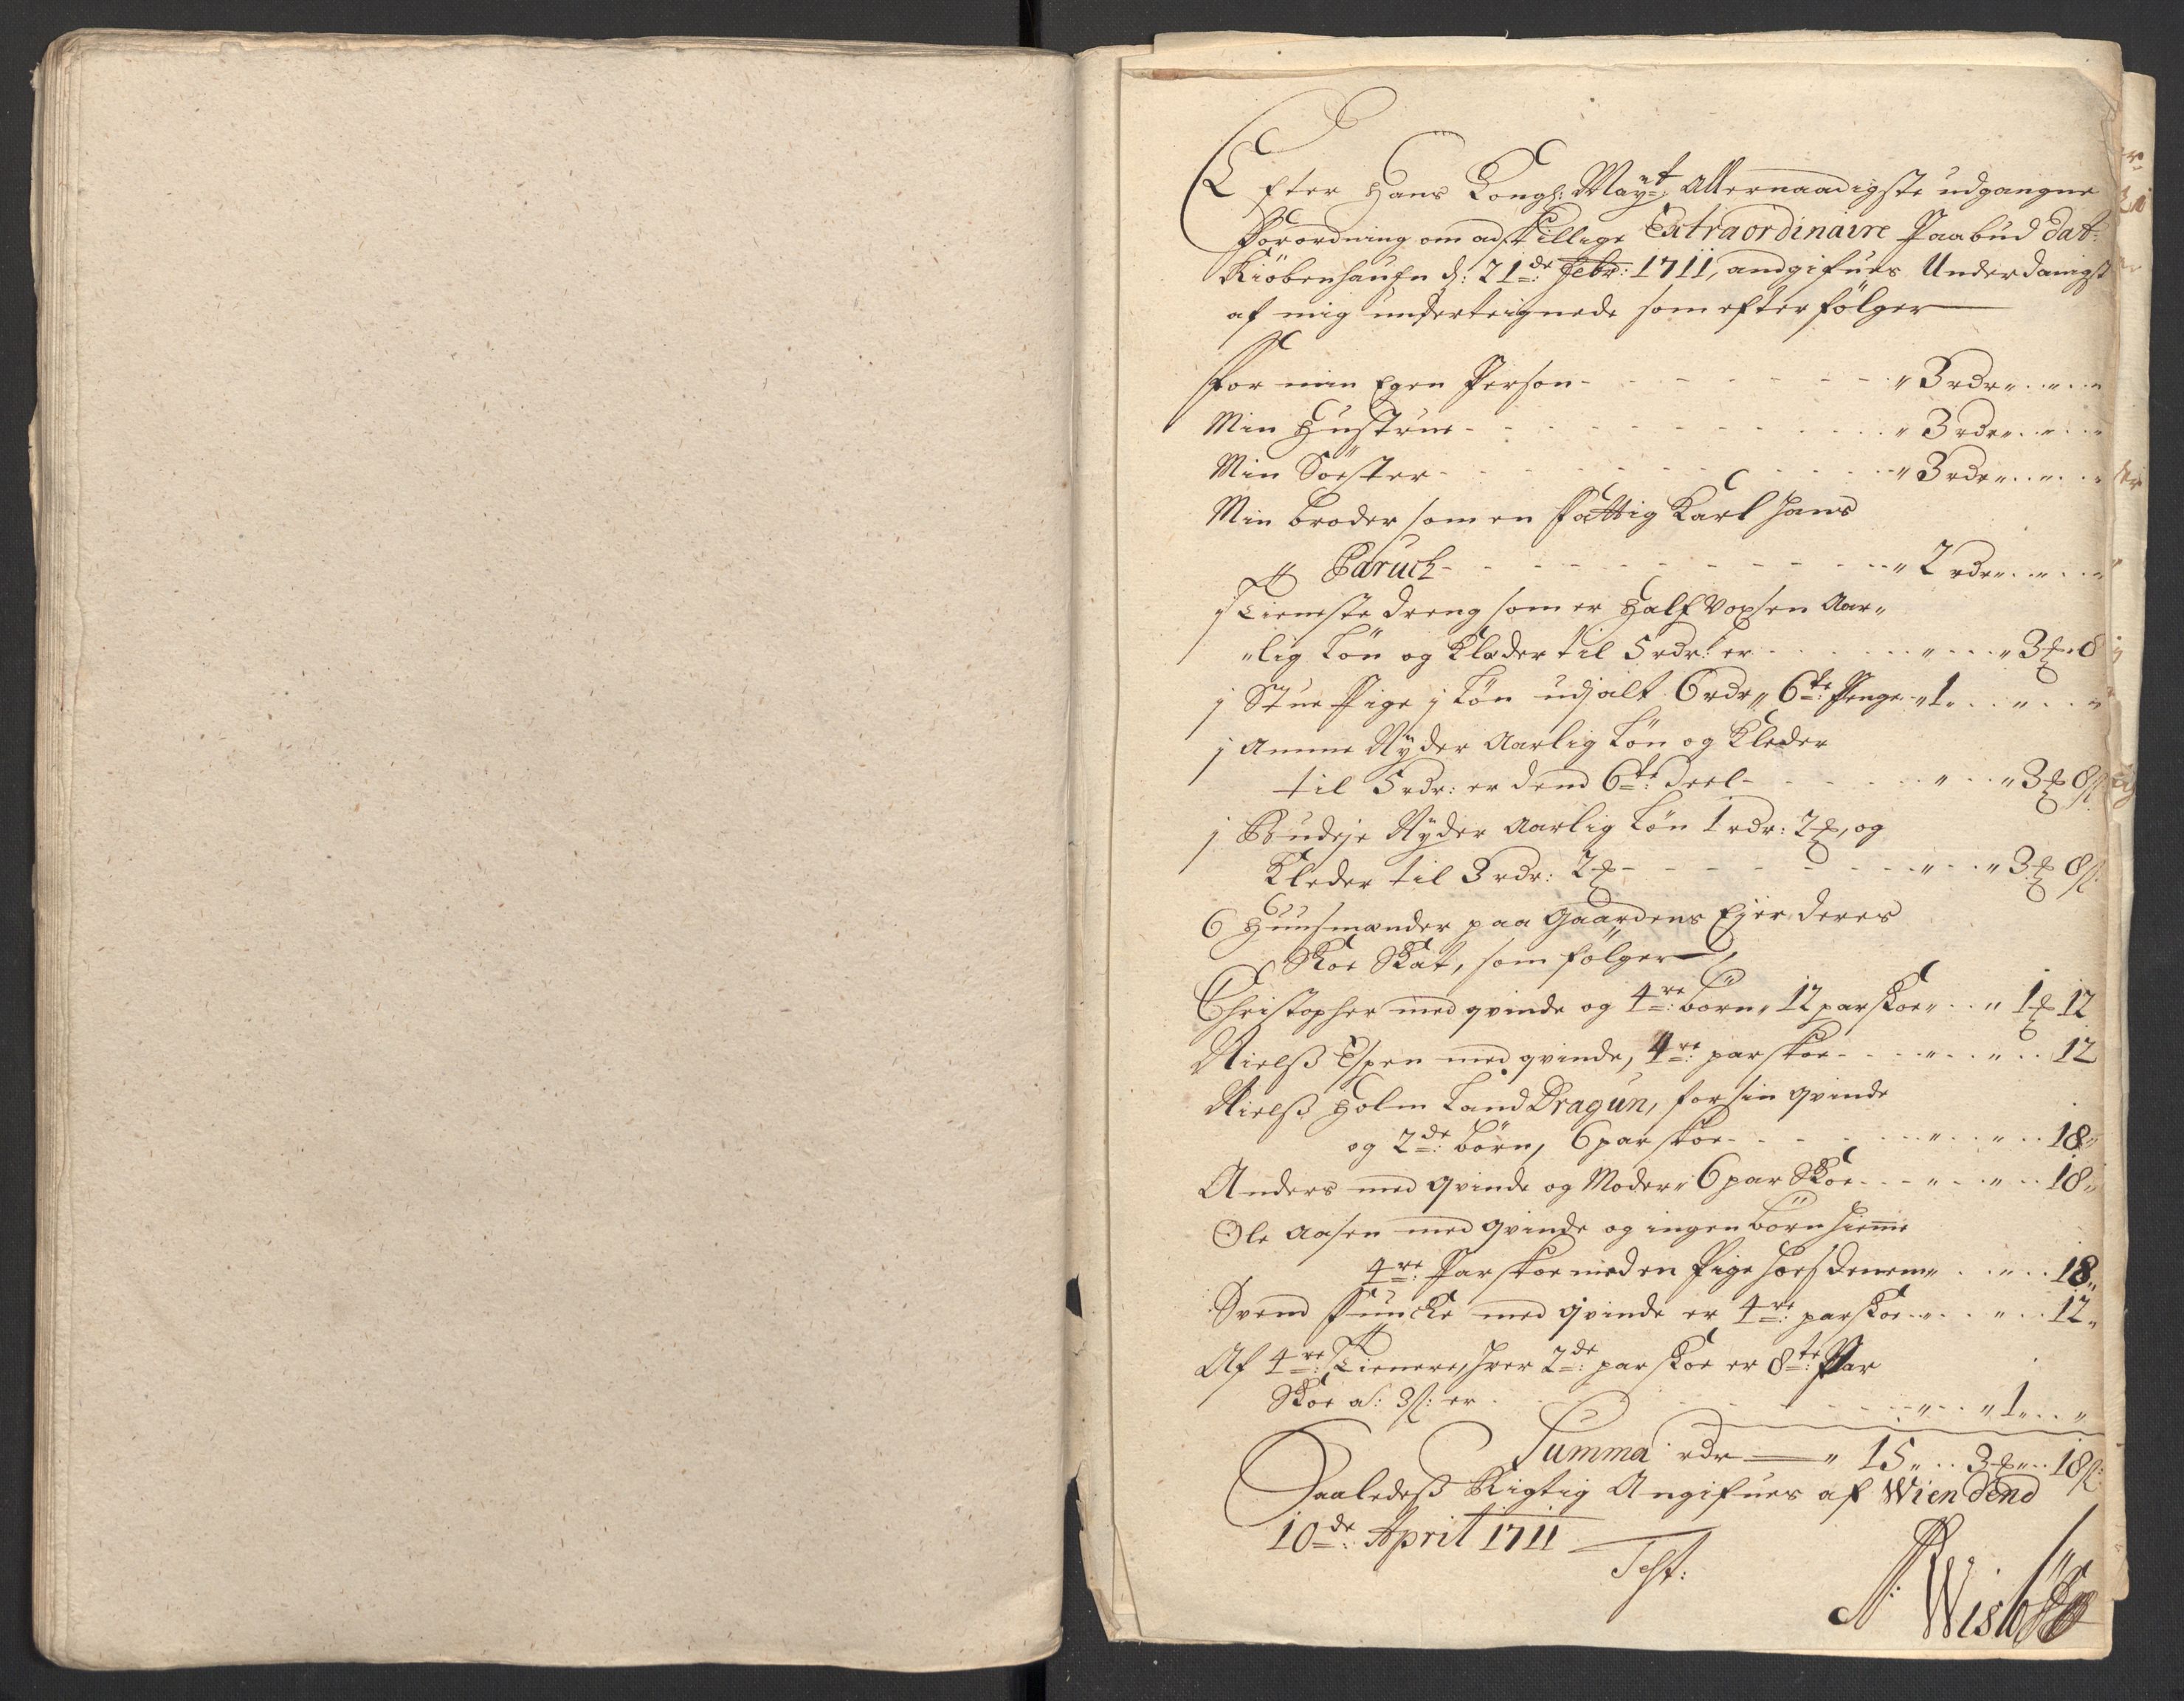 Efter Hans Kongl: May:t Allernaadigste udgangne
Forordning om adskillige Extraordinaire Paabud dat:
Kiöbenhaufn d: 21de: Febr: 1711, andgifues Underdanigst
af mig underteignede som efterfölger
For min Egen Person - - - - - - - - „ 3 rdr „ . „ . „
Min Hustrue - - - - - - - - „ 3 rdr „ . „ . „
Min Söster - - - - - - - - „ 3 rdr „ . „ . „
Min broder som en fattig Karl Hans
Baruch - - - - - - - - „ 2 rdr „ . „ . „
j Tieneste dreng som er Half voxsen Aar„
„lig Lön og Klæder til 5 rdr: er - - - - „ . . „ 3 ₰ . 8
j Stue Pige j Lön udj alt 6 rdr „ 6te: Penge „ 1 „ . . „ . . „
j Amme Nyder Aarlig Lön og Kleder
til 5 rdr: er dend 6te: deel - - - - „ . . „ 3 ₰ 8 ß
j Budeje Nyder Aarlig Lön 1 rdr: 2 ₰, og
Kleder til 3 rdr: 2 ₰ - - - - - - „ . . „ 3 ₰ 8 ß
6 Huusmænder paa Gaardens Ejer deres
Skoe Skat, som fölger
Christopher med qvinde og 4re: börn „ 12 par skoe „ . . „ 1 ₰ 12
Nielß Espen med qvinde, 4re: par skoe - - - „ . . „ . . 12
Nielß Holm Land Dragun, for sin qvinde
og 2de: börn, 6 par skoe - - - - „ . . „ . . 18 „
Anders med qvinde og Moder „ 6 par Skoe - - - „ . . „ . . 18 „
Ole Aasen med qvinde og ingen börn hieme
4re: Par skoe med en Pige hoes dennem „ . . „ . . 18 „
Svend Funcke med qvinde er 4re: par skoe . „ . . „ . . 12 „
Af 4re: Tienere, hver 2de: par skoe er 8te: Par
Skoe a: 3 ß: er - - - - - - - „ . . „ 1 „ . . „
Summa rdr — „ 15 „ . . 3 ₰ „ . . 18 ß:
Saaledeß Rigtig Angifues af Wien dend
10de: April 1711
Test: